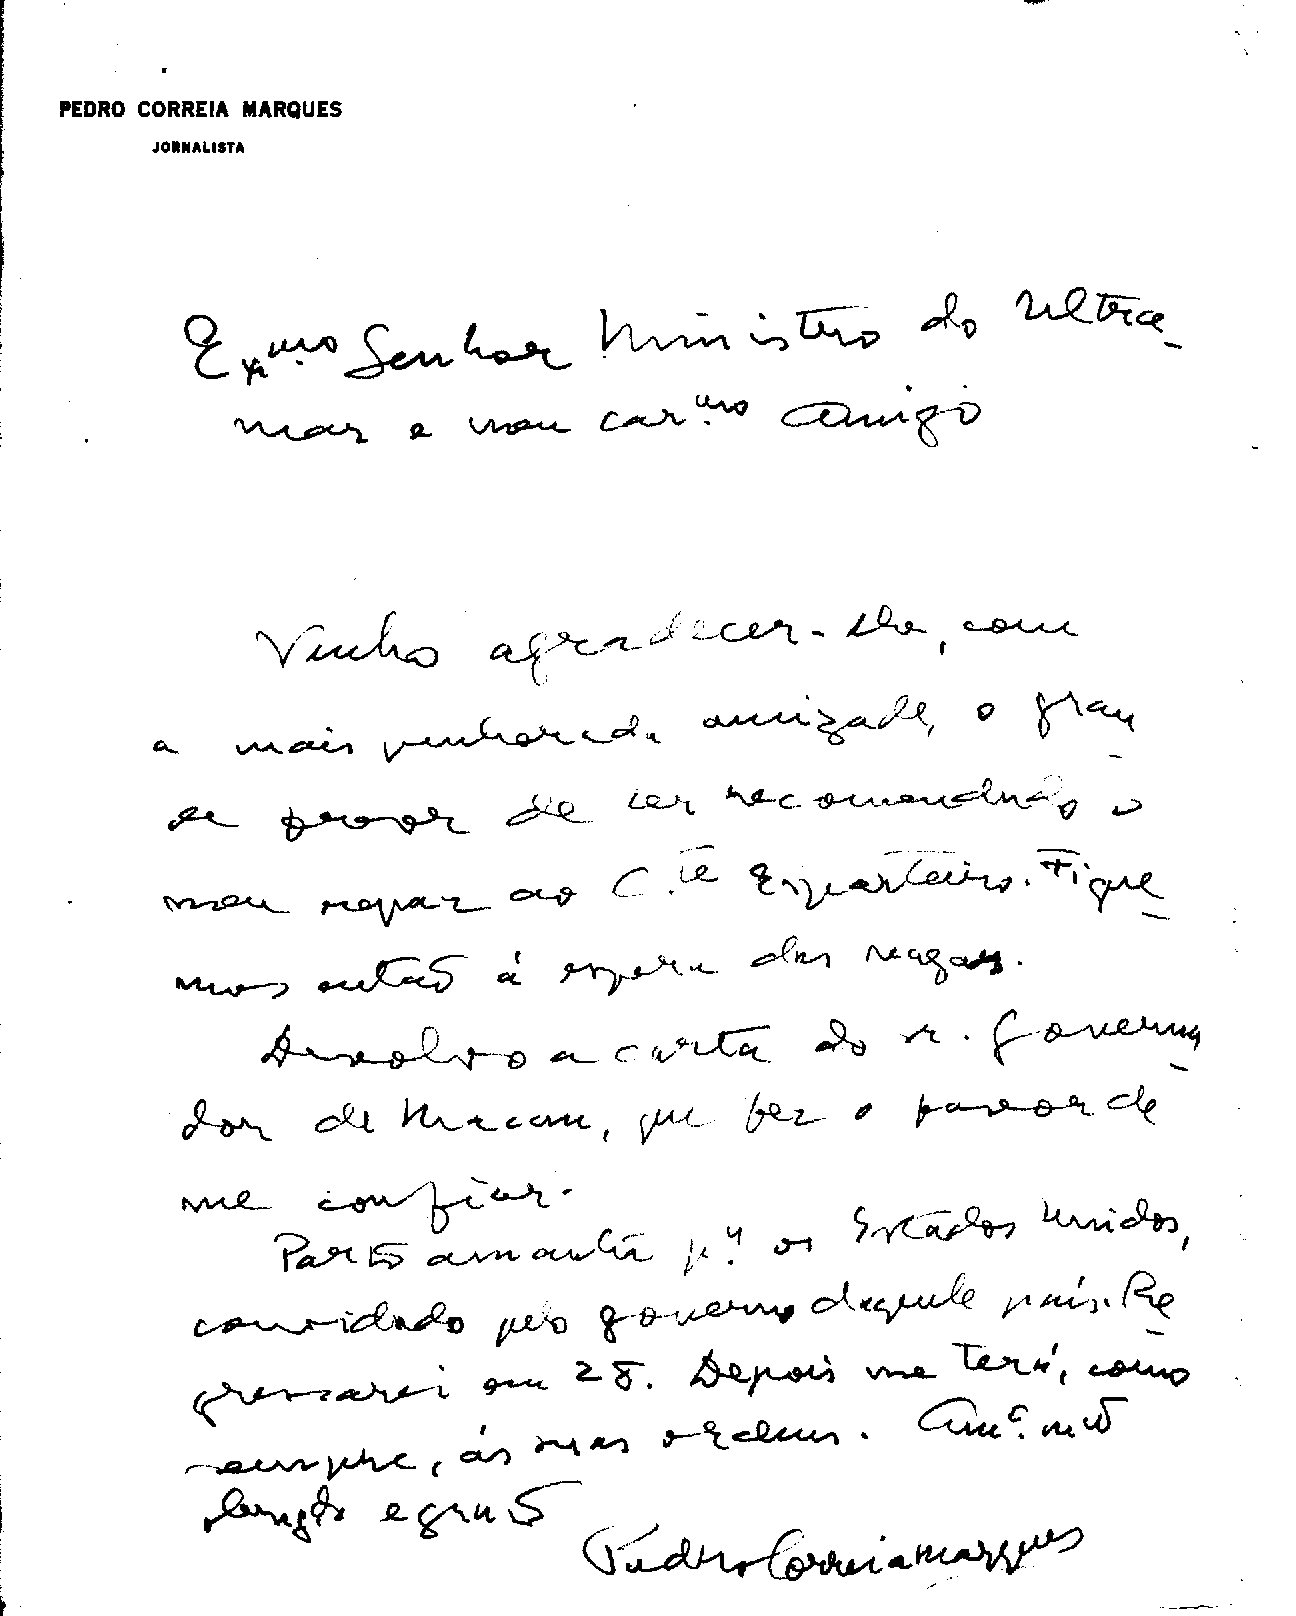 PEDRO CORREIA MARQUES
JORNALISTA
Exmo Senhor Ministro do Ultra-
mar e meu car.mo amigo
Venho agradecer-lhe, com
a mais penhorada amizade, o gran-
de favor de ter recomendado o
meu rapaz ao C.te Esparteiro. Fique-
mos então á espera das vagas.
Devolvo a carta do sr. Governa-
dor de Macau, que fez o favor de
me confiar.
Parto amanhã p.a os Estados Unidos,
convidado pelo governo daquele país. Re-
gressarei em 28. Depois me terá, como
sempre, ás suas ordens. Am.o mto
e grato
Pedro Correia Marques